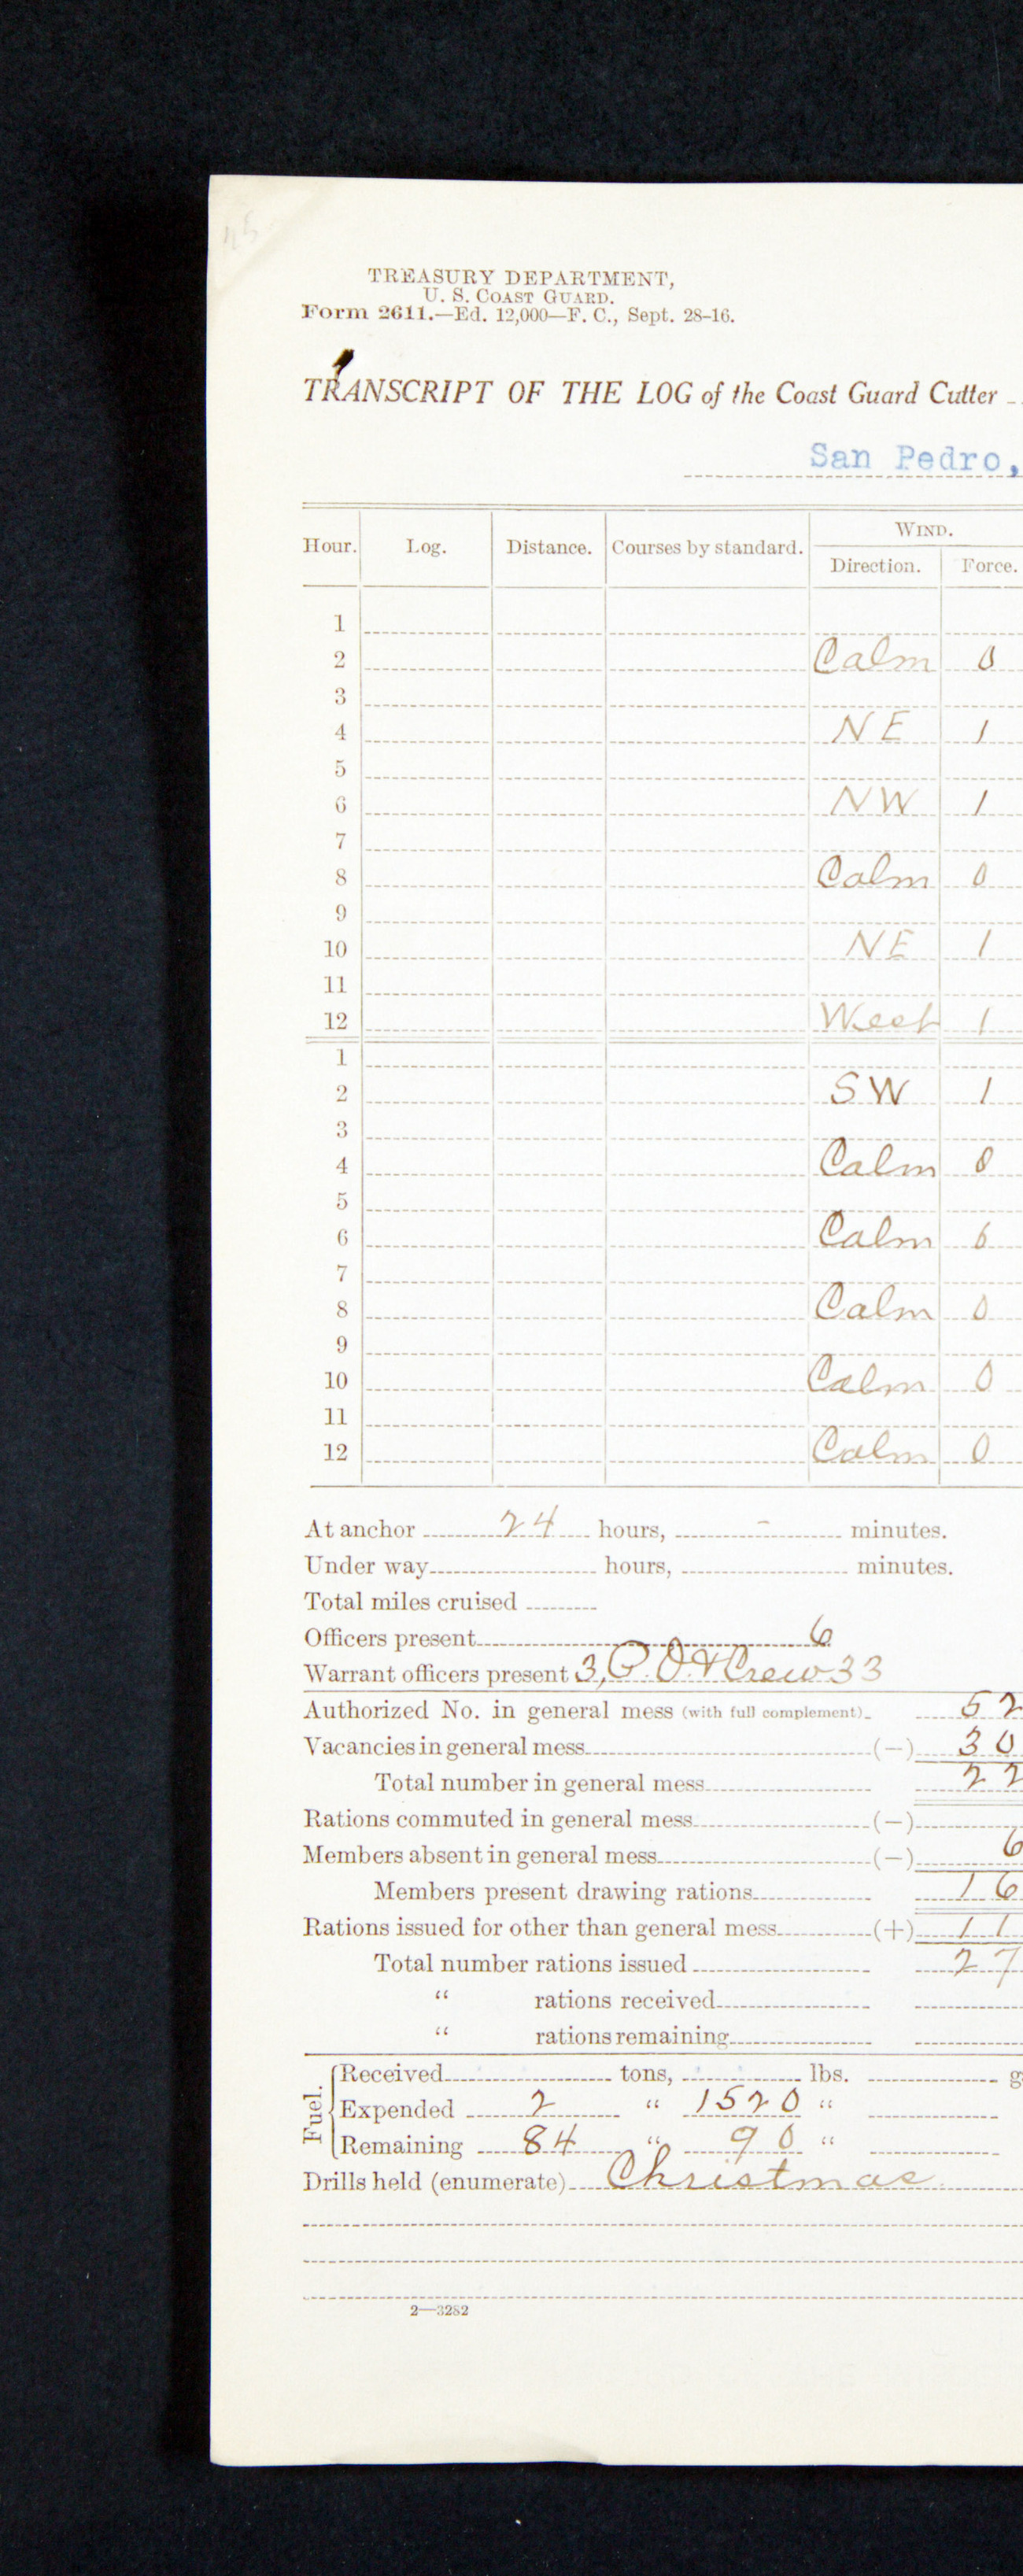 TREASURY DEPARTMENT,
U. S. COAST GUARD.
Form 2611.—Ed. 12,000—F. C., Sept. 28-16.
TRANSCRIPT OF THE LOG of the Coast Guard Cutter
San Pedro,
Hour. Log. Distance. Courses by standard. WIND.
Direction. Force.
1
2 Calm 0
3
4 NE 1
5
6 NW 1
7
8 Calm 0
9
10 NE 1
11
12 West 1
1
2 SW 1
3
4 Calm 0
5
6 Calm 0
7
8 Calm 0
9
10 Calm 0
11
12 Calm 0
At anchor 24 hours, - minutes.
Under way hours, minutes.
Total miles cruised
Officers present 6
Warrant officers present 3, P. O. & Crew 33
Authorized No. in general mess (with full complement) 52
Vacancies in general mess (—) 30
Total number in general mess 22
Rations commuted in general mess (—)
Members absent in general mess (—) 6
Members present drawing rations 16
Rations issued for other than general mess (+) 11
Total number rations issued 27
“ rations received
“ rations remaining
Fuel. Received tons, lbs. g
Expended 2 “ 1520 “
Remaining 84 “ 90 “
Drills held (enumerate) Christmas
2—3282